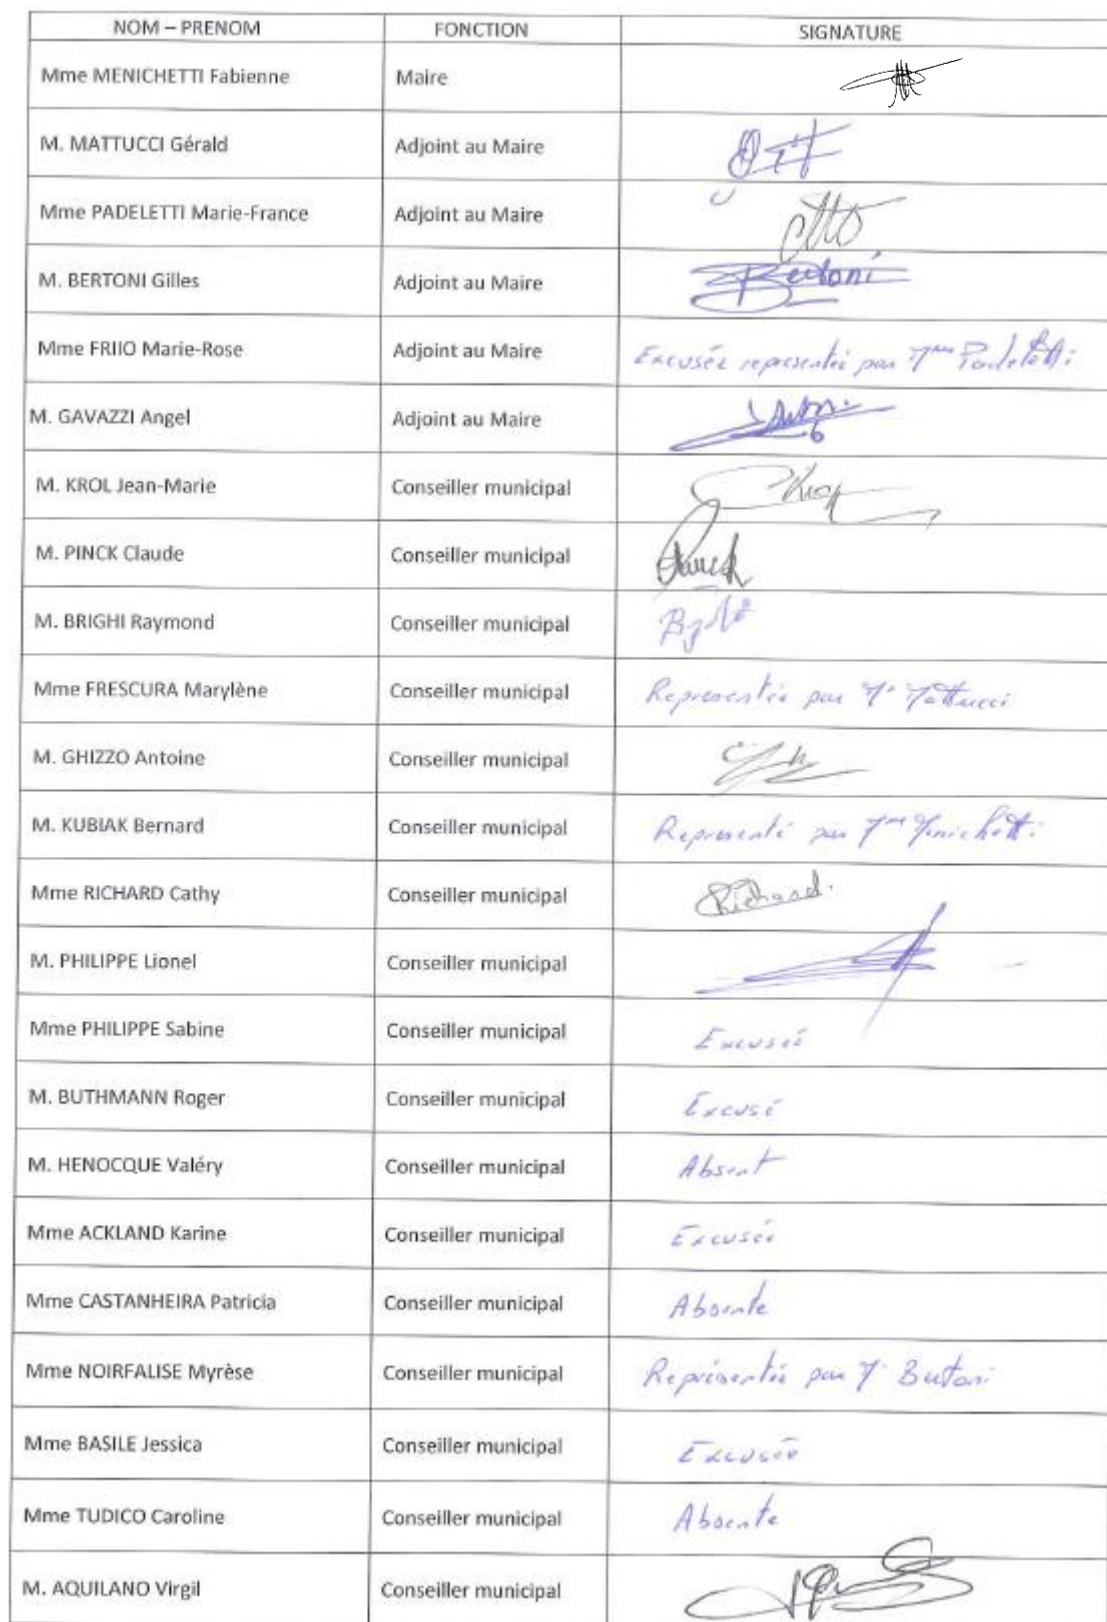 NOM – PRENOM FONCTION SIGNATURE
Mme MENICHETTI Fabienne Maire
M. MATTUCCI Gérald Adjoint au Maire
Mme PADELETTI Marie-France Adjoint au Maire
M. BERTONI Gilles Adjoint au Maire Bertoni
Mme FRIIO Marie-Rose Adjoint au Maire Excusée représentée par Mme Padeletti
M. GAVAZZI Angel Adjoint au Maire
M. KROL Jean-Marie Conseiller municipal Krol
M. PINCK Claude Conseiller municipal Pinck
M. BRIGHI Raymond Conseiller municipal
Mme FRESCURA Marylène Conseiller municipal Representée par Mr Mattucci
M. GHIZZO Antoine Conseiller municipal
M. KUBIAK Bernard Conseiller municipal Representé par Mme Menichetti
Mme RICHARD Cathy Conseiller municipal Richard
M. PHILIPPE Lionel Conseiller municipal
Mme PHILIPPE Sabine Conseiller municipal Excusée
M. BUTHMANN Roger Conseiller municipal Excusé
M. HENOCQUE Valéry Conseiller municipal Absent
Mme ACKLAND Karine Conseiller municipal Excusée
Mme CASTANHEIRA Patricia Conseiller municipal Absente
Mme NOIRFALISE Myrèse Conseiller municipal Représentée par Mr Bertoni
Mme BASILE Jessica Conseiller municipal Excusée
Mme TUDICO Caroline Conseiller municipal Absente
M. AQUILANO Virgil Conseiller municipal